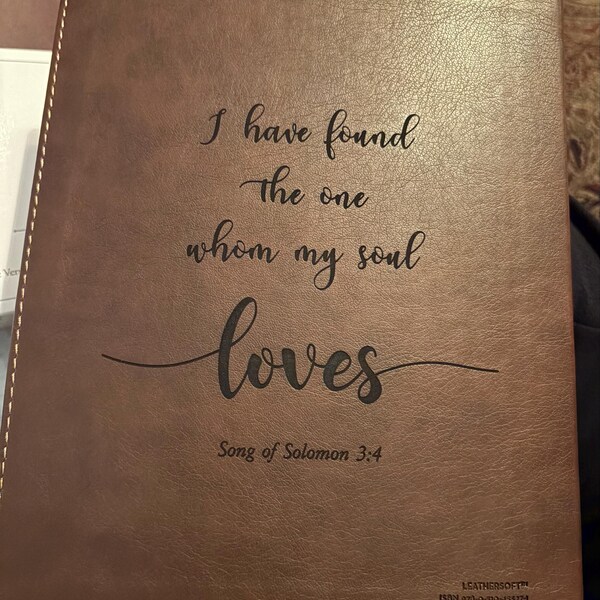 I have found
the one
whom my soul
loves
Song of Solomon 3:4
LEATHERSOFT™
ISBN